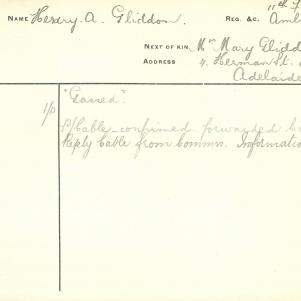 NAME Henry. A. Gliddon. REG. &C. 11th F
Amb
NEXT OF KIN, Mrs Mary Glidd
ADDRESS 4. Herman St.
Adelaide
"Gassed".
1/0
P/Cable confirmed forwarded
Reply Cable from Comms. Informatio